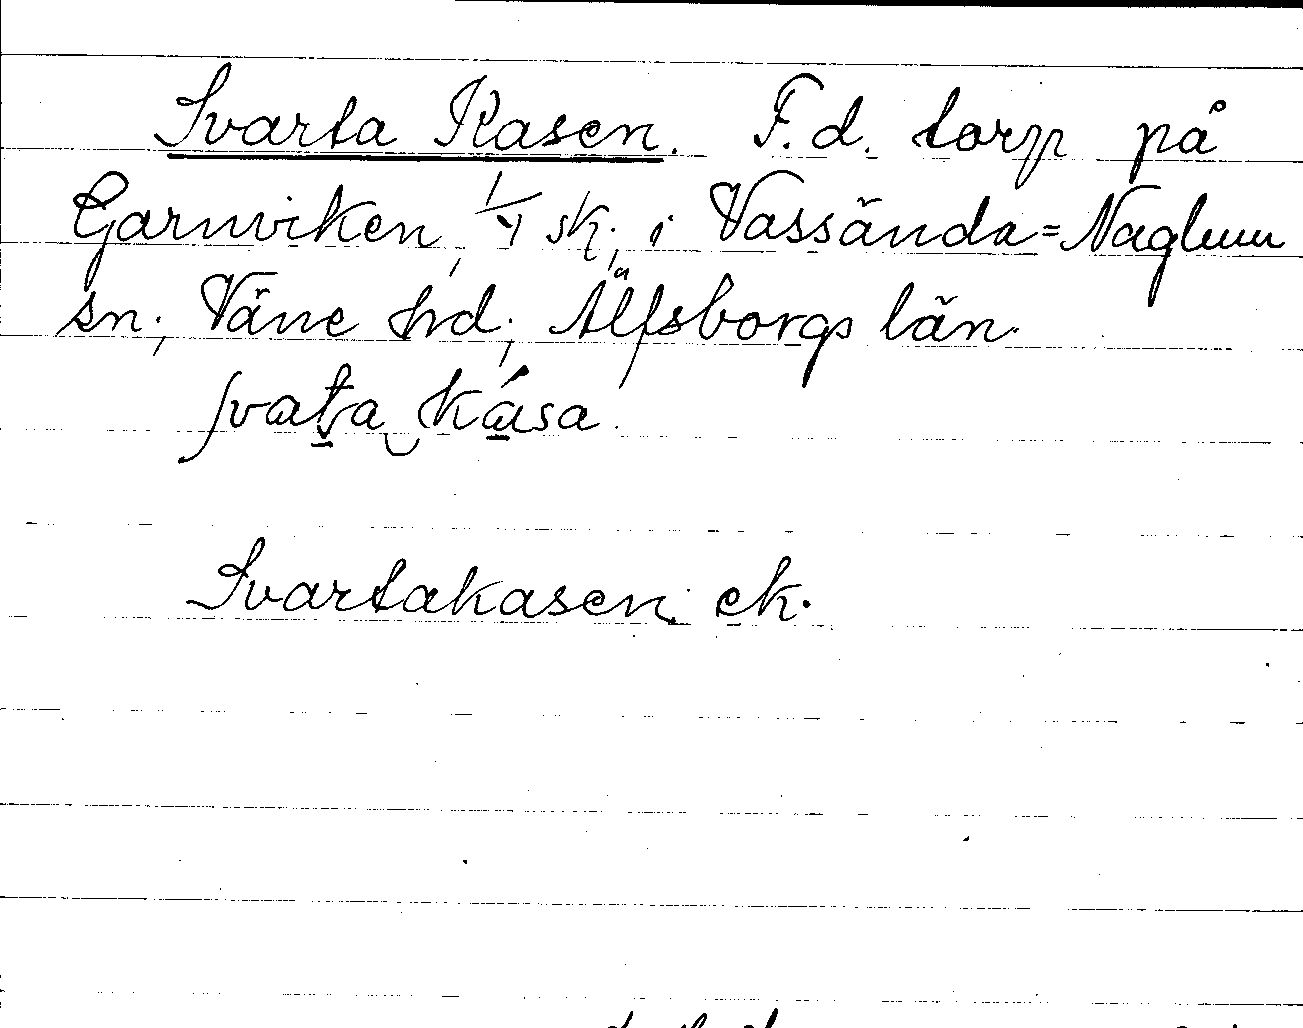 Svarta Kasen. F.d. torp på
Garnviken, 1/4 sk., i Vassända=Naglum
sn., Väne hd., Älfsborgs län.
svaʈa‿kása.
Svartakasen ek.